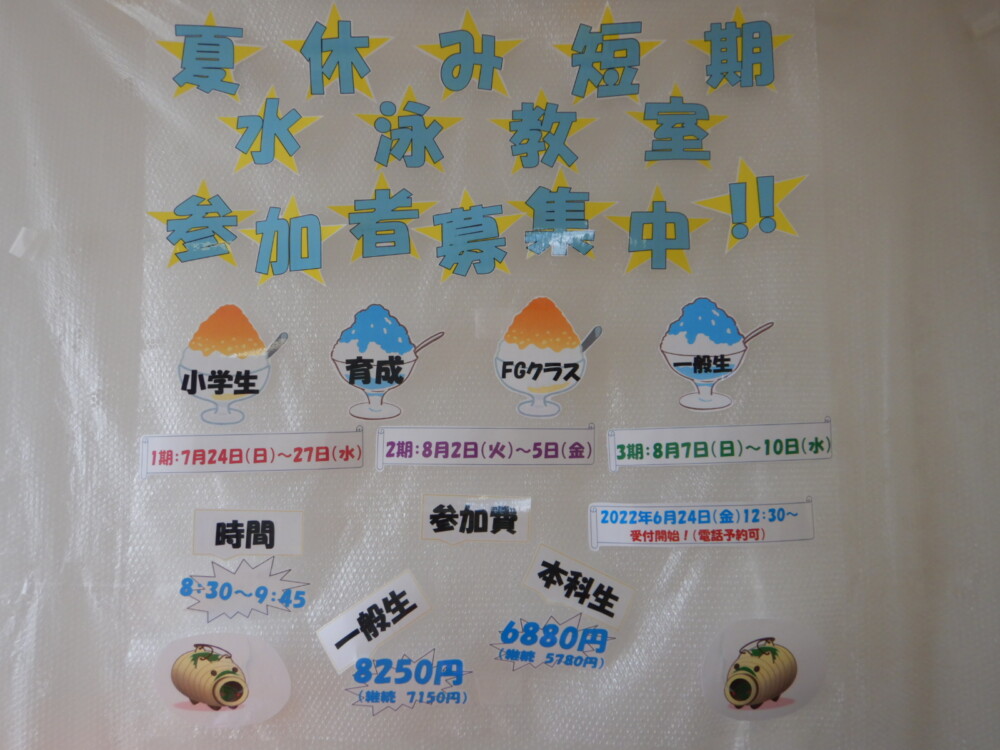 夏休み短期
水泳教室
参加者募集中!!
小学生
育成
FGクラス
一般生
1期:7月24日(日)～27日(水)
2期:8月2日(火)～5日(金)
3期:8月7日(日)～10日(水)
時間
8:30～9:45
参加費
2022年6月24日(金)12:30～
受付開始!(電話予約可)
一般生
8250円
(継続 7150円)
本科生
6880円
(継続 5780円)